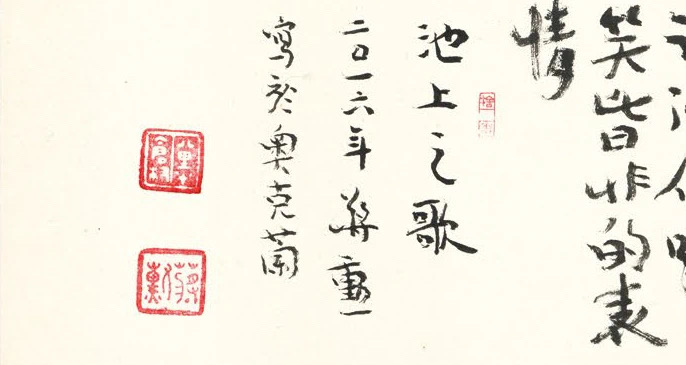 笑皆非的表
情
池上之歌
二〇一六年蔣勳
寫於奧克蘭
蔣勳